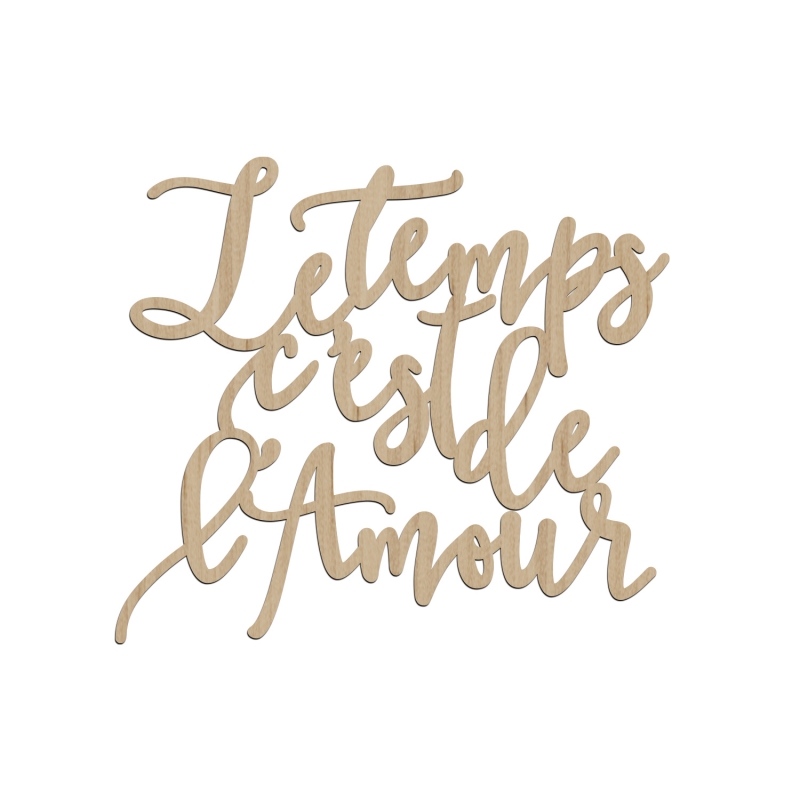 Le temps
c'est de
l'Amour